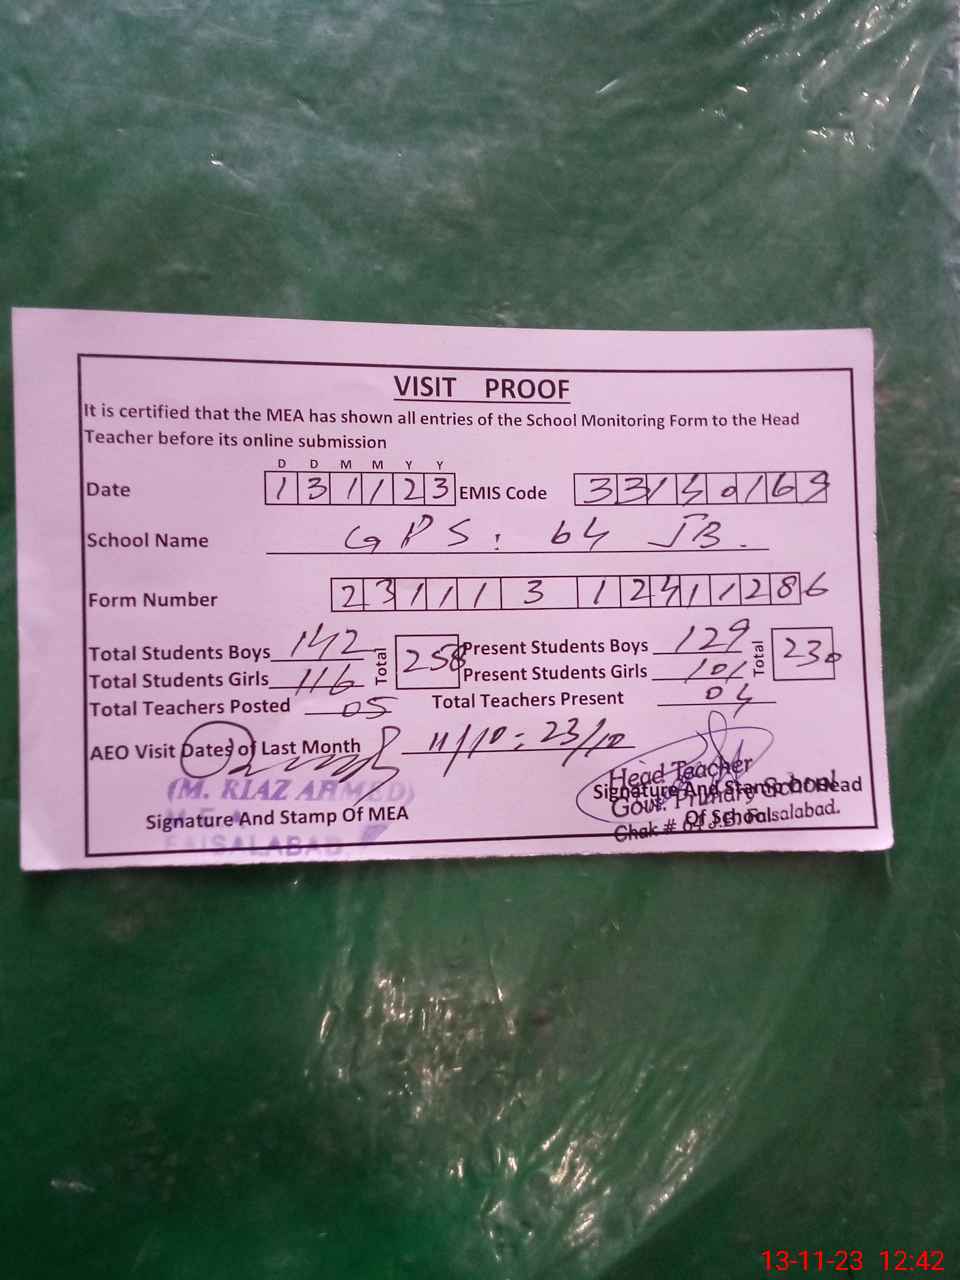 VISIT PROOF
It is certified that the MEA has shown all entries of the School Monitoring Form to the Head
Teacher before its online submission
D D M M Y Y
Date 1 3 1 1 2 3 EMIS Code 3 3 1 4 0 1 6 9
School Name GPS: 64 JB.
Form Number 2 3 1 1 1 3 1 2 4 1 1 2 8 6
Total Students Boys 142 Total 258 Present Students Boys 129 Total 230
Total Students Girls 116 Present Students Girls 101
Total Teachers Posted 05 Total Teachers Present 04
AEO Visit Dates of Last Month 11/10 : 23/10
(M. RIAZ AHMED)
Signature And Stamp Of MEA
FAISALABAD.
Head Teacher
Signature And Stamp Of Head
Govt. Primary School
Of School
Chak # 64 J.B. Faisalabad.
13-11-23 12:42